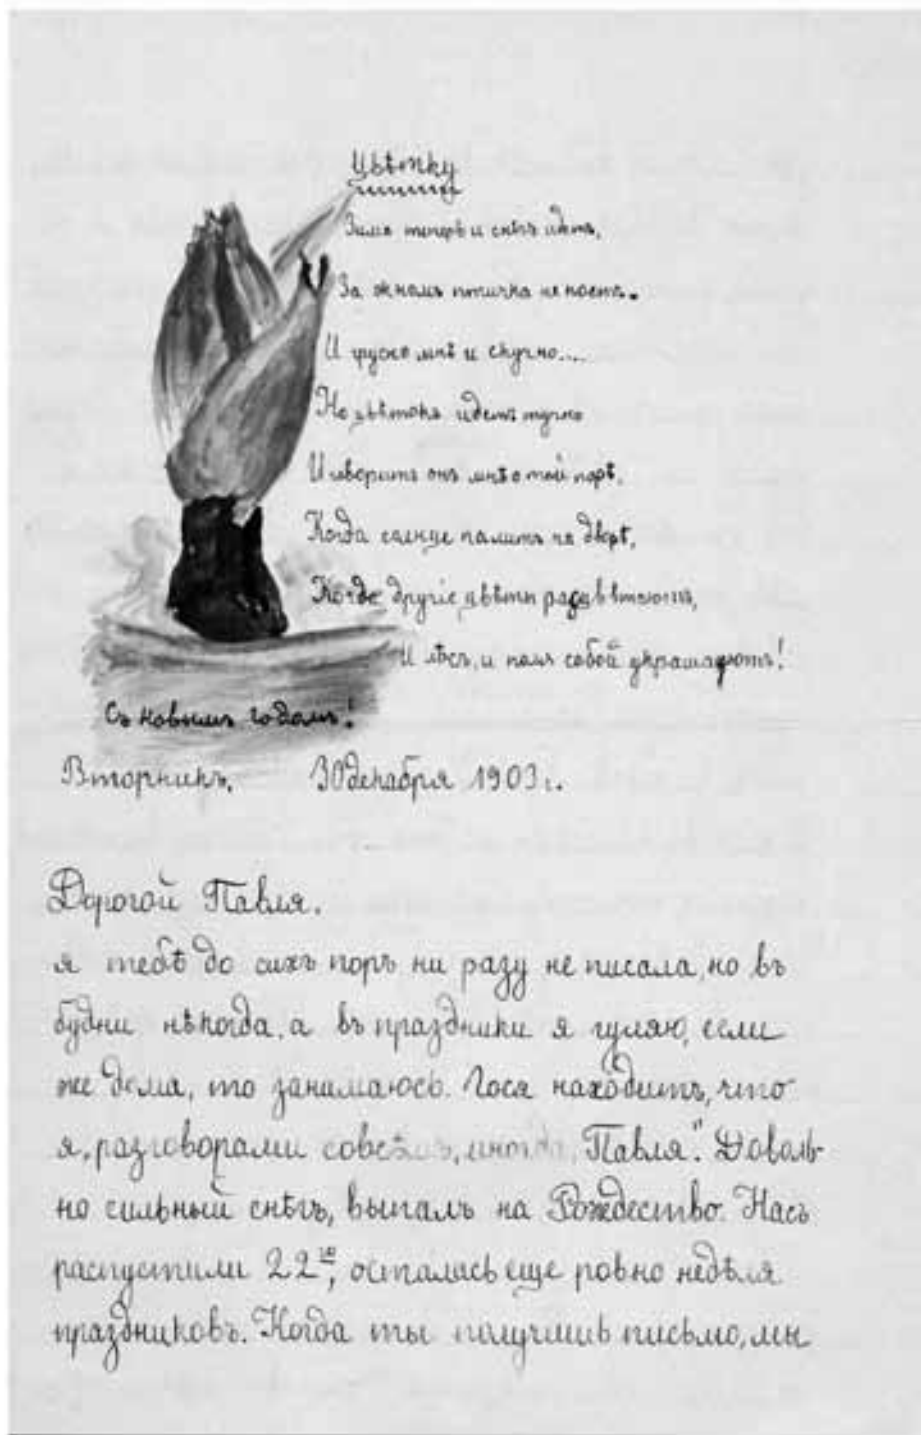 Цвѣтку
Зима теперь и снѣгъ идетъ,
За окномъ птичка не поетъ.
И грусно мнѣ и скучно....
Но цвѣтокъ идетъ тучно
И говоритъ онъ мнѣ о той порѣ,
Когда солнце палитъ на дворѣ,
Когда другіе цвѣты расцвѣтаютъ,
И лѣсъ, и поля собой украшаютъ!
Съ новымъ годомъ!
Вторникъ. 30 декабря 1903 г.
Дорогой Павля.
я тебѣ до сихъ поръ ни разу не писала, но въ
будни нѣкогда, а въ праздники я гуляю, если
же дома, то занимаюсь. Гося находитъ, что
я, разговорами совсѣмъ, иногда, Павля". Доволь-
но сильный снѣгъ, выпалъ на Рождество. Насъ
распустили 22го, осталась еще ровно недѣля
праздниковъ. Когда ты получишь письмо, мы